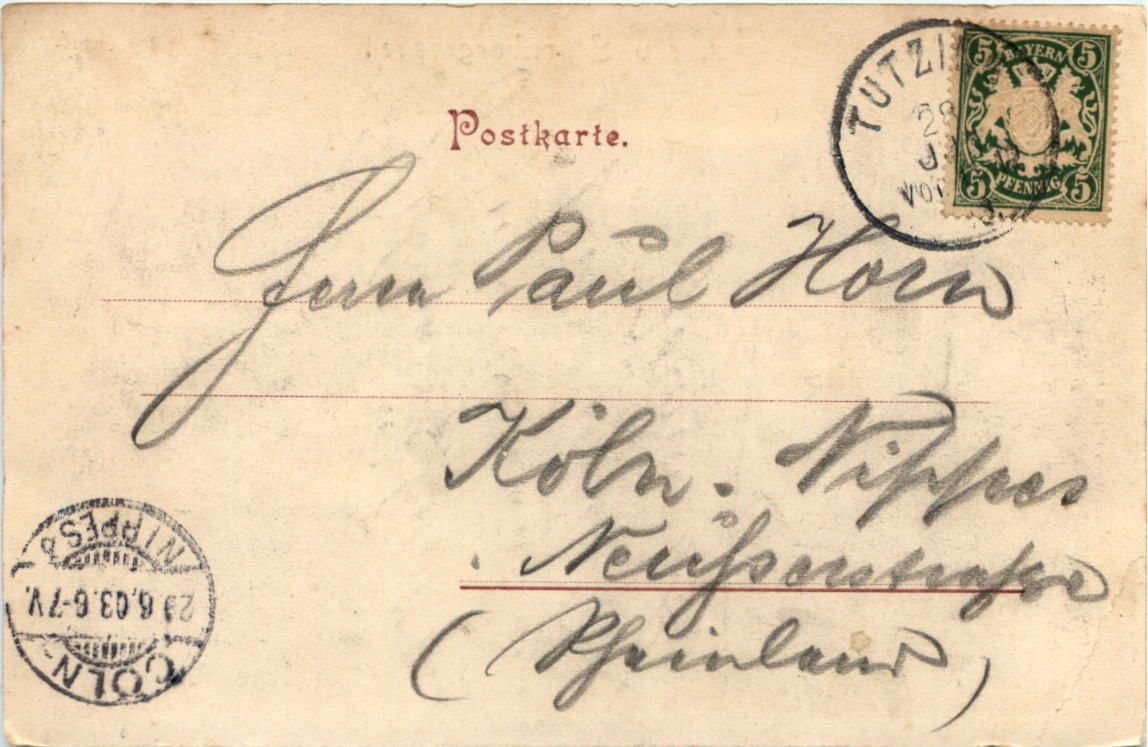 Postkarte.
TUTZI
28
VOR
5 BAYERN 5
5 PFENNIG 5
Herrn Paul Horn
Köln-Nippes
Neusserstrasse
(Rheinland)
CÖLN-NIPPES
29.6.03.6-7V.